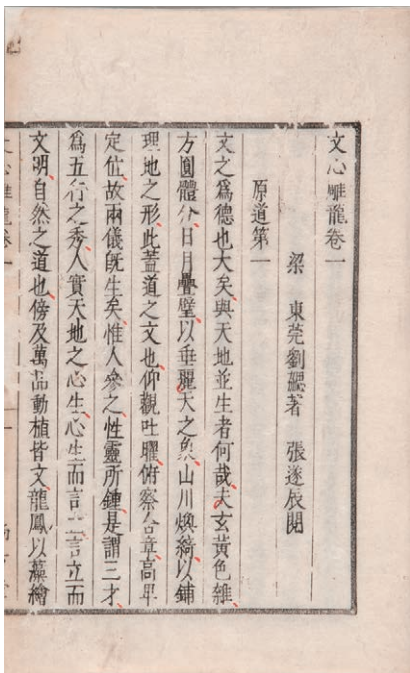 文心雕龍卷一
梁 東莞劉勰著 張遂辰閱
原道第一
文之爲德也大矣與天地並生者何哉夫玄黃色雜
方圓體分日月疊璧以垂麗天之象山川煥綺以鋪
理地之形此蓋道之文也仰觀吐曜俯察含章高卑
定位故兩儀旣生矣惟人參之性靈所鍾是謂三才
爲五行之秀人實天地之心生心生而言立言立而
文明自然之道也傍及萬品動植皆文龍鳳以藻繪
文心雕龍卷一 一